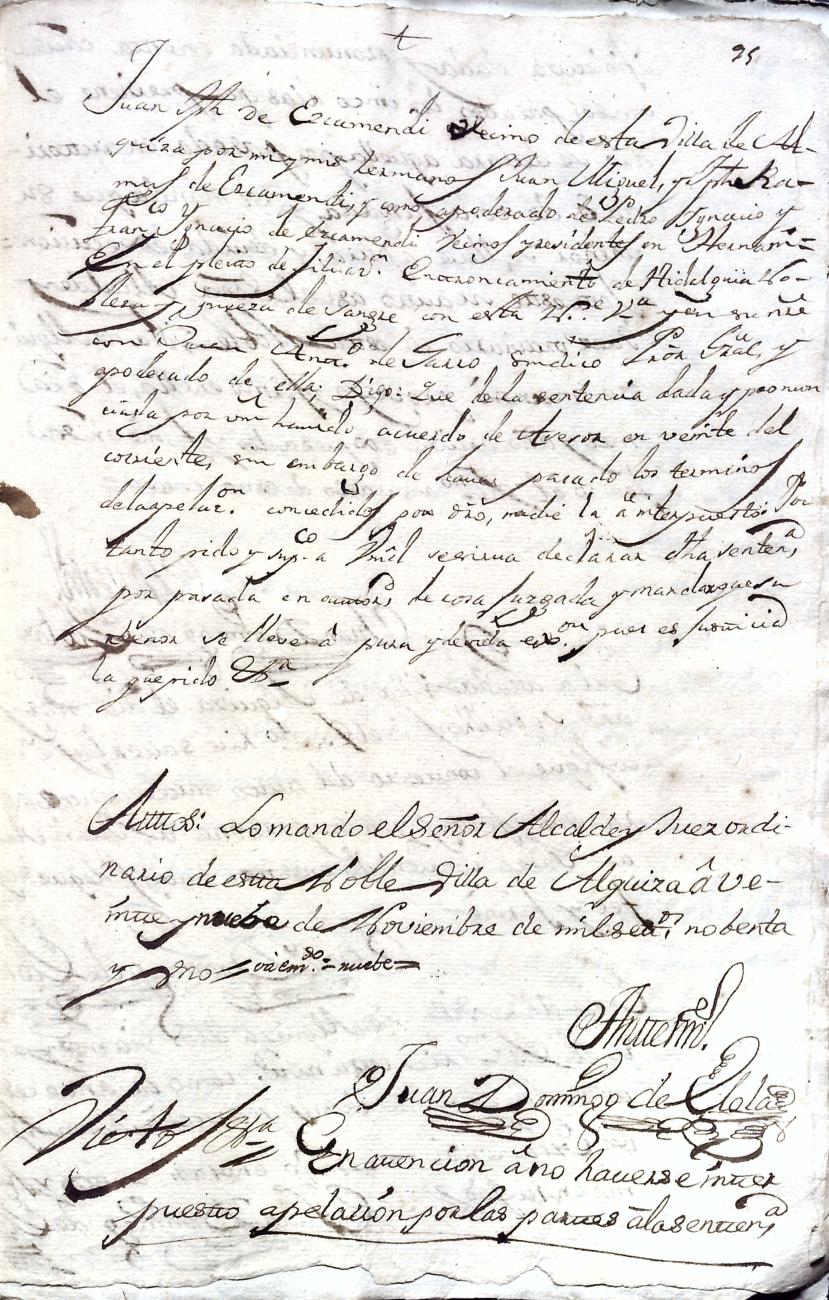 +
95
Juan Jph de Ezcamendi Vecino de esta Villa de Al-
quiza por mi y mis hermanos Juan Miguel, y Jphe Ra-
mus de Ezcamendi, y como apoderado de Pedro Ignacio y
Fran.co Ignacio de Ezcamendi Vecinos y residentes en Hernani=
En el pleito de filiaz.on Entroncamiento de Hidalguia No-
bleza y pureza de Sangre con esta N. V.a y en su nre
con Juan Ant.o de Garro sindico Pror Gral, y
apoderado de ella; Digo: Que de la sentencia dada y pronun
ciada por vm havido acuerdo de Asesor en veinte del
corriente, sin embargo de haver pasado los terminos
de la apelaz.on concedidos por dro, nadie la a interpuesto: Por
tanto pido y sup.co a Vmd se sirva declarar dha senten.a
por pasada en autorid.d de cosa Juzgada y mandar que su
thenor se lleve â pura y devida exon.on pues es Justicia
la que pido &a
Auttos: Lo mando el Señor Alcalde y Juez ordi-
nario de estta Noble Villa de Alquiza â ve-
intte y nuebe de Noviembre de mil sett.os nobenta
y uno = vâ em.do = nuebe =
Antte mi
Juan Domingo de Olola
Visto &a En attencion â no haverse intter
puestto apelacion por las parttes â la sentten.a